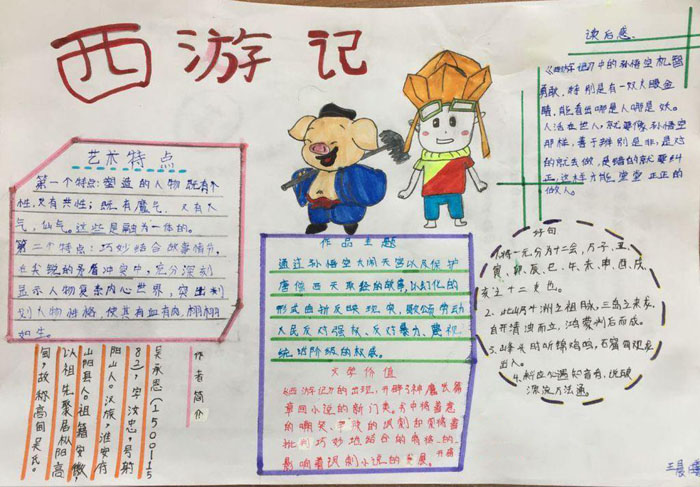 西游记
读后感
《西游记》中的孙悟空机智
勇敢,特别是有一双火眼金
睛,能看出哪是人哪是妖。
人活在世上,就要像孙悟空
那样,善于辨别是非,是对
的就去做,是错的就要纠
正,这样才能堂堂正正的
做人。
艺术特点
第一个特点:塑造的人物既有个
性,又有共性;既有魔气,又有人
气,仙气。这些是融为一体的。
第二个特点:巧妙结合故事情节,
在尖锐的矛盾冲突中,充分深刻
显示人物复杂内心世界,突出刻
划人物性格,使其有血有肉,栩栩
如生。
作品主题
通过孙悟空大闹天宫以及保护
唐僧西天取经的故事,以幻化的
形式曲折反映现实,歌颂劳动
人民反对强权、反对暴力、蔑视
统治阶级的叛逆。
文学价值
《西游记》的出现,开辟了神魔长篇
章回小说的新门类。书中将善意
的嘲笑、辛辣的讽刺和严肃的
批判巧妙地结合的有格的
影响着讽刺小说的发展。
好句
1.将一元分为十二会,乃子、丑、
寅、卯、辰、巳、午、未、申、酉、戌、
亥之十二支也。
2.此山乃十洲之祖脉,三岛之来龙,
自开清浊而立,鸿蒙判后而成。
3.峰头时听锦鸡鸣,石窟每观龙
出入。
作者简介
吴承恩(1500~15
82),字汝忠,号射
阳山人。汉族,淮安府
山阳县人。祖籍安徽,
以祖先聚居枞阳高
甸,故称高甸吴氏。